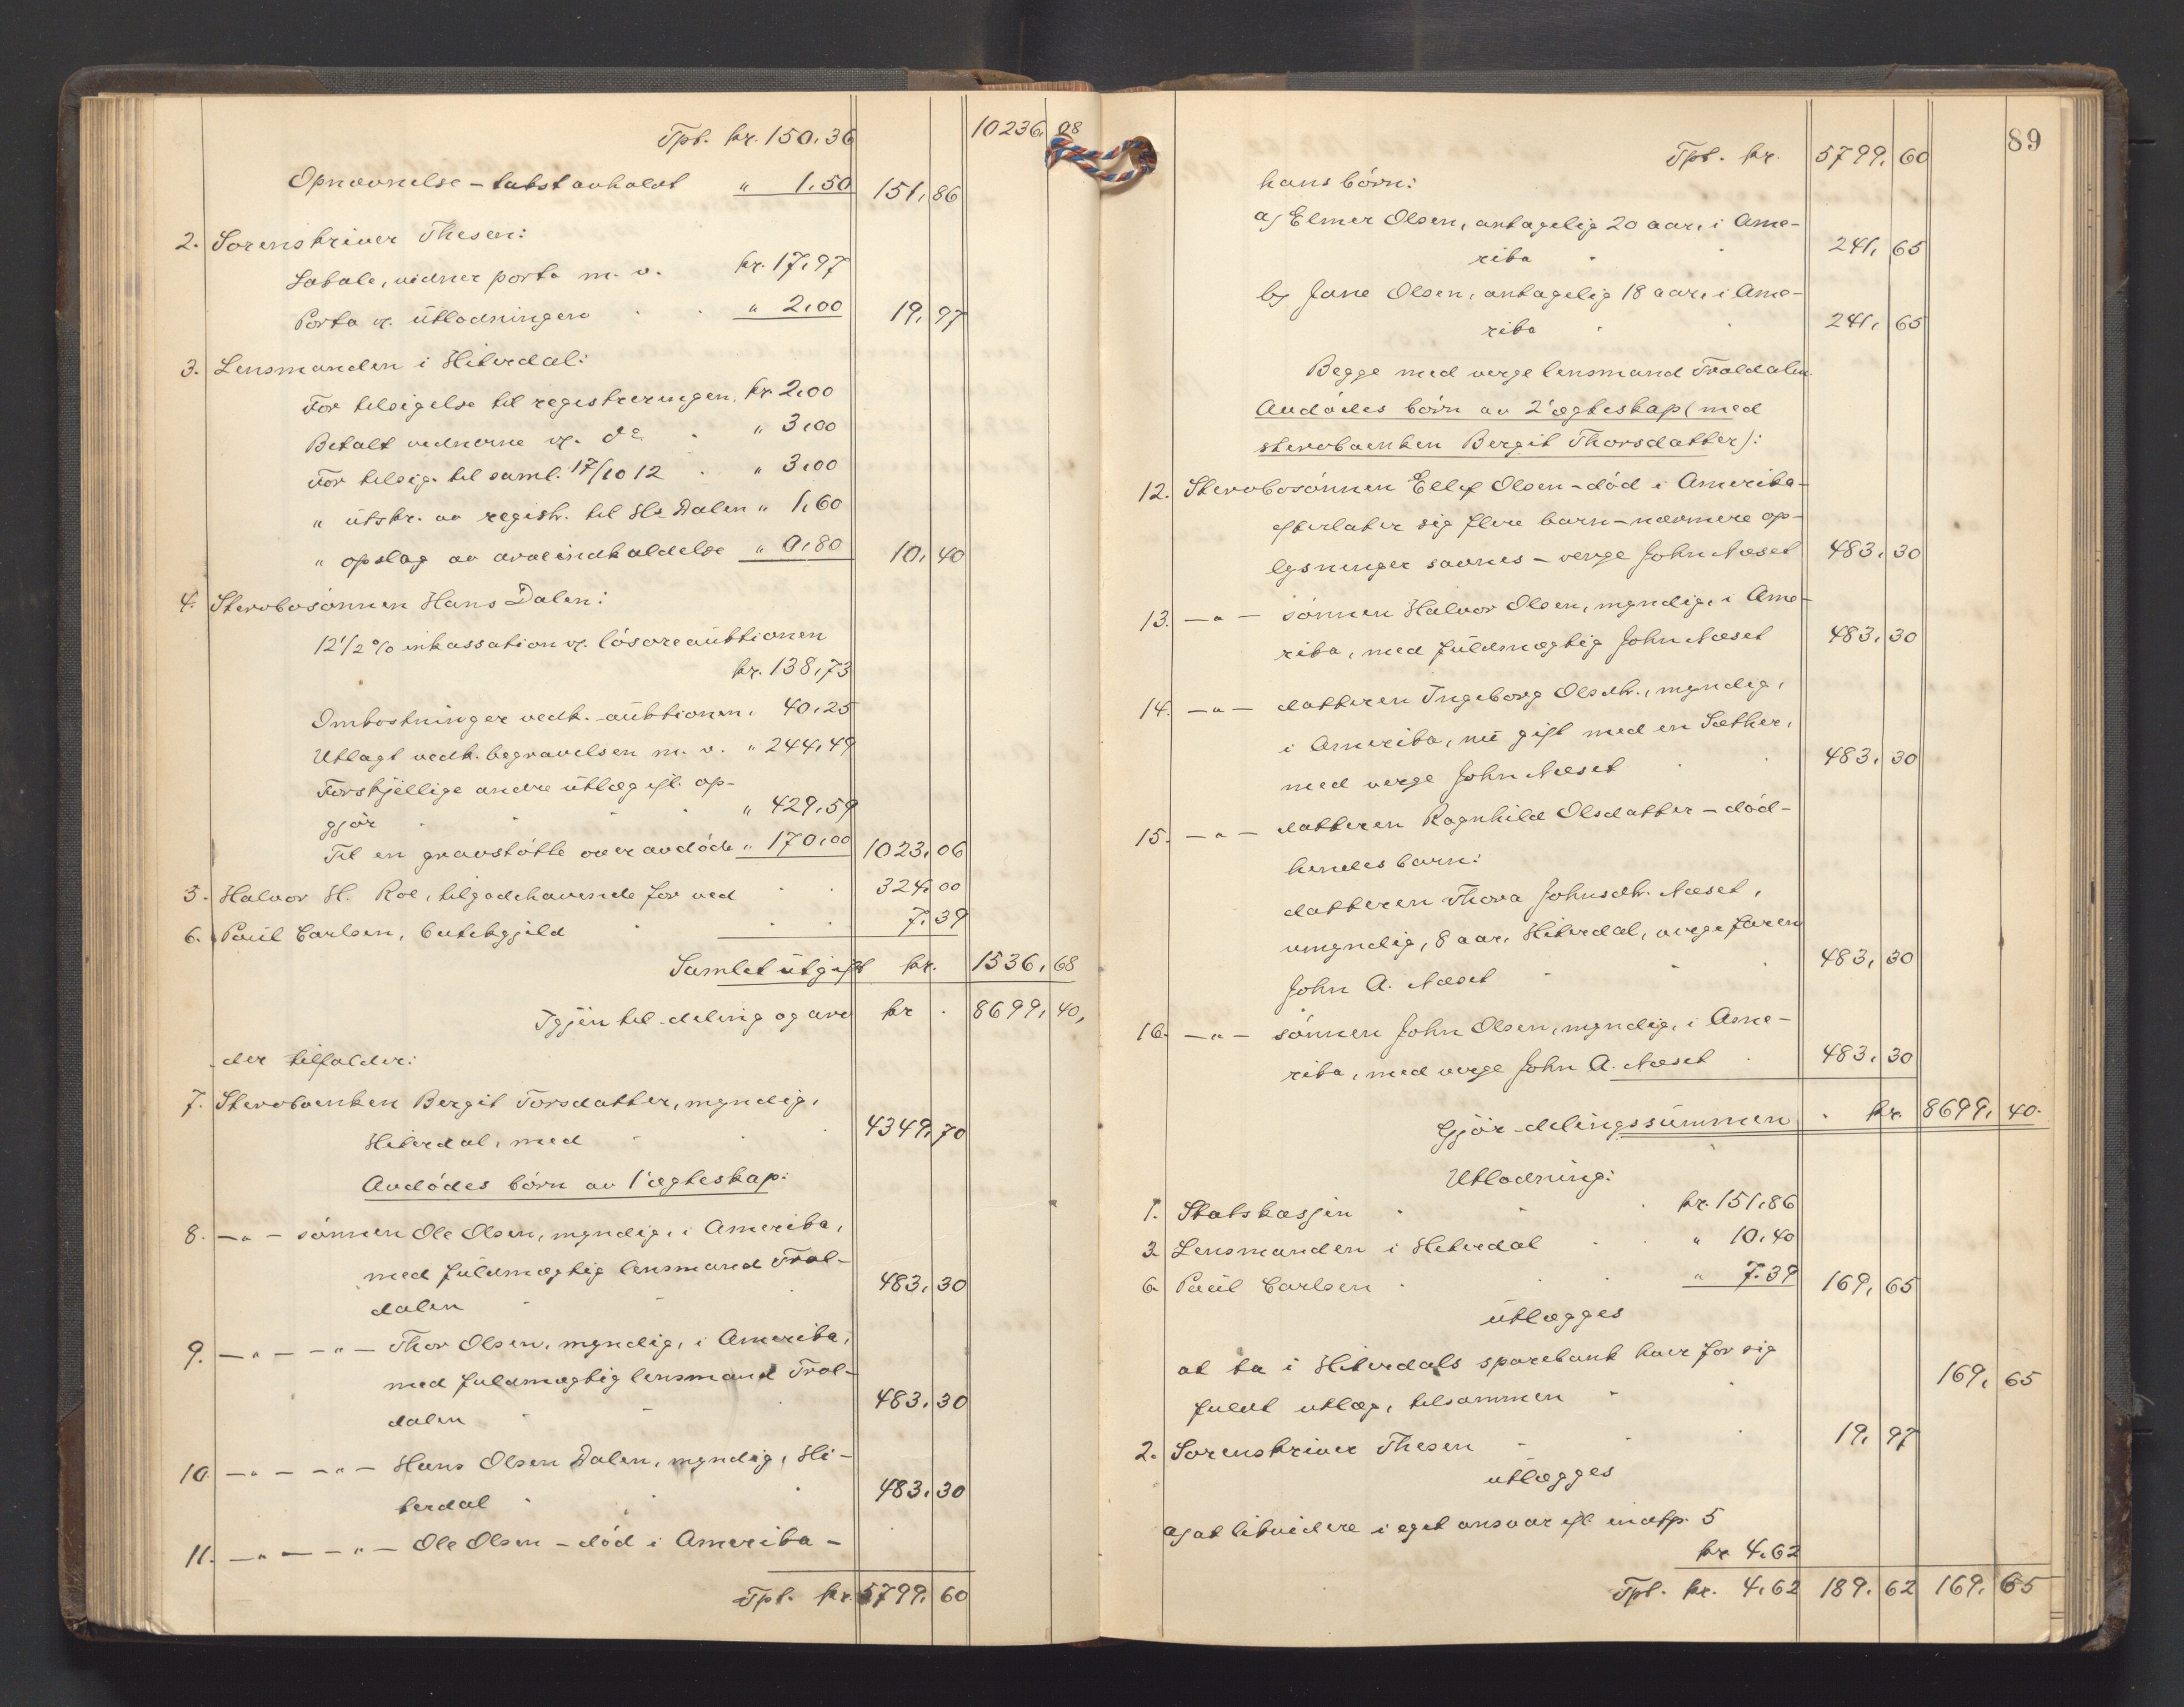 Tpt. kr. 150,36 10236, 08
Opnævnelse - takst avholdt " 1,50 151, 86
2. Sorenskriver Thesen:
Lokale, vidner porto m. v. kr. 17,97
Porto v. utlodningen " 2,00 19, 97
3. Lensmanden i Hiterdal:
For tilsigelse til registreringen, kr 2,00
Betalt vidnerne v. do " 3,00
For tilsig. til saml. 17/10 12 " 3,00
" utskr. av registr. til Hs Dalen " 1,60
" opslag av " 0,80 10, 40
4. Stervbosønnen Hans Dalen:
12 1/2 % inkassation v. løsøreauktionen
kr. 138,73
Omkostninger vedk. auktionen, 40,25
Utlagt vedk. begravelsen m. v. " 244,49
Forskjellige andre utlæg efl. op-
gjør " 429,59
Til en gravstøtte over avdøde " 170,00 1023, 06
5. Halvor H. Roe, tilgodehavende for ved 324, 00
6. Paul Carlsen, butikgjæld 7, 39
Samlet utgift kr. 1536, 68
Igjen til deling og arv kr. 8699, 40,
der tilfalder:
7. Stervboenken Bergit Torsdatter, myndig,
Hiterdal, med 4349, 70
Avdødes børn av 1' ægteskap:
8. —„— sønnen Ole Olsen, myndig, i Amerika,
med fuldmægtig lensmand Trol-
dalen 483, 30
9. —„— —„— Thor Olsen, myndig, i Amerika,
med fuldmægtig lensmand Trol-
dalen 483, 30
10. —„— —„— Hans Olsen Dalen, myndig, Hi-
terdal 483, 30
11. —„— —„— Ole Olsen - død i Amerika -
Tpt. kr. 5799, 60
89
Tpt. kr. 5799, 60
hans børn:
a) Elmer Olsen, antagelig 20 aar, i Ame-
rika 241, 65
b) Jane Olsen, antagelig 18 aar, i Ame-
rika 241, 65
Begge med verge lensmand Troldalen.
Avdødes børn av 2' ægteskap (med
stervboenken Bergit Thorsdatter):
12. Stervbosønnen Ellef Olsen - død i Amerika -
efterlater sig flere barn - nærmere op-
lysninger savnes - verge John Næset 483, 30
13. —„— sønnen Halvor Olsen, myndig, i Ame-
rika, med fuldmægtig John Næset 483, 30
14. —„— datteren Ingeborg Olsdtr., myndig,
i Amerika, nu gift med en Sæther,
med verge John Næset 483, 30
15. —„— datteren Ragnhild Olsdatter - død -
hendes barn:
datteren Thora Johnsdtr. Næset,
umyndig, 8 aar, Hiterdal, verge faren
John A. Næset 483, 30
16. —„— sønnen John Olsen, myndig, i Ame-
rika, med verge John A. Næset 483, 30
Gjør delingssummen kr. 8699, 40.
Utlodning:
1. Statskassen kr. 151,86
3 Lensmanden i Hiterdal " 10,40
6. Paul Carlsen " 7,39 169, 65
utlægges
at ta i Hiterdals sparebank hver for sig
fuldt utlæg, tilsammen 169, 65
2. Sorenskriver Thesen 19, 97
utlægges
a) at likvidere i eget ansvar efl. indtp. 5
kr 4,62
Tpt. kr. 4,62 189, 62 169, 65